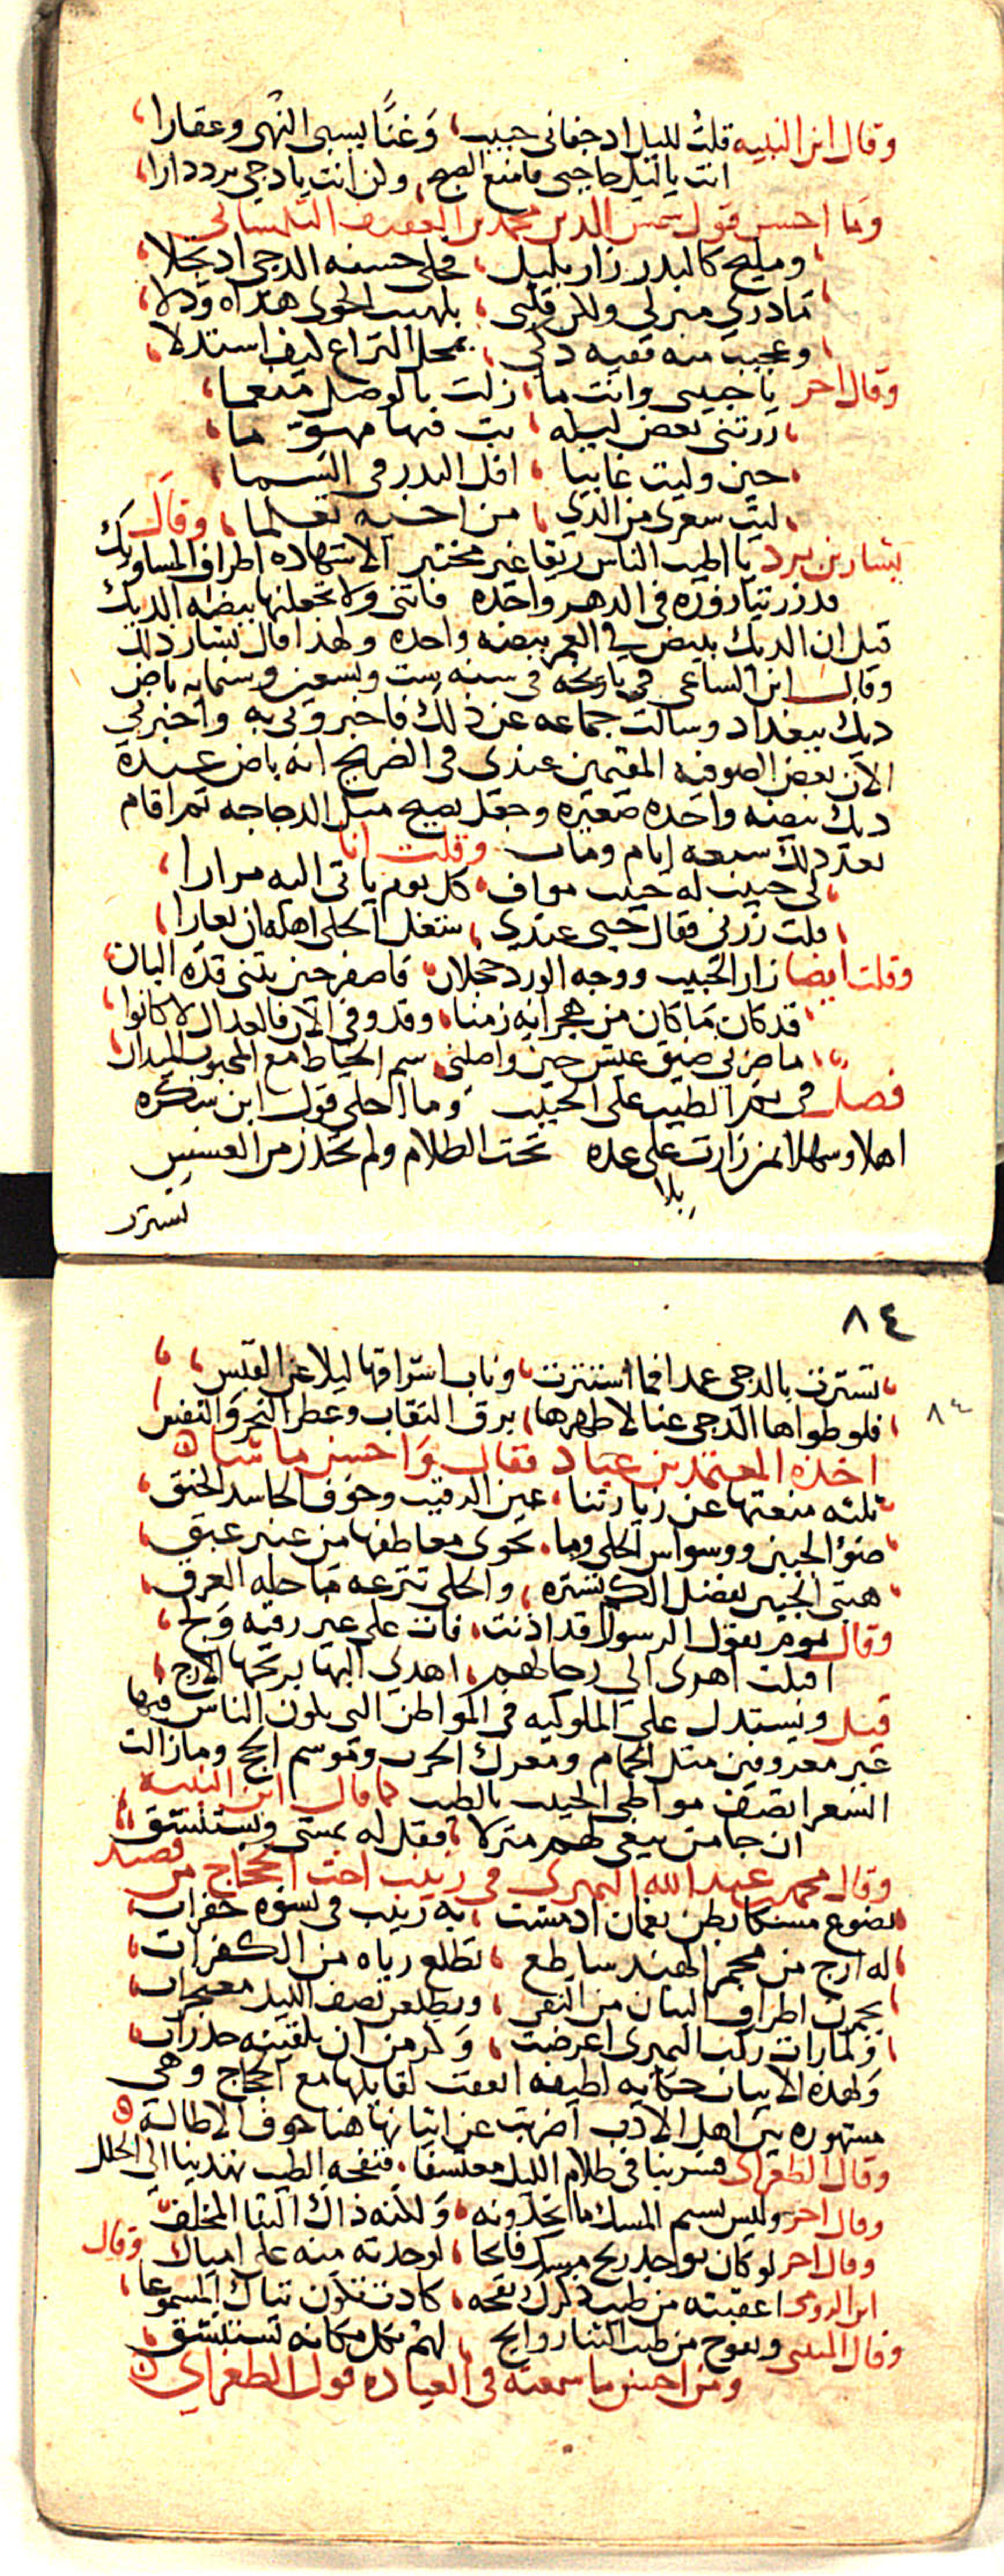 وقال ابن النبيه قلت لليل اذ جفانى حبيب وغنا يسبى النهى وعقارا
انت يا ليل حاجبى فامنع الصبح وكن انت يا دجى برددارا
وما احسن قول شمس الدين محمد بن العفيف التلمسانى
ومليح كالبدر زار بليل فجلى حسنه الدجى اذ تجلا
ما درى منزلى ولكن قلبى بلهيب الجوى هداه ودلا
وعجيب منه فقيه ذكى بمحل النزاع كيف استدلا
وقال اخر يا حبيبى وانت ما زلت بالوصل منعما
زرتنى بعض ليلة بت فيها مهوما
حين وليت غايبا افل البدر فى السما
ليت شعرى من الذى من احبه تعلما وقال
بشار بن برد يا اطيب الناس ريقا غير مختبر الا شهادة اطراف المساويك
قد زرتنا زورة فى الدهر واحدة فاثنى ولا تجعلنها بيضة الديك
قيل ان الديك يبيض فى العمر بيضة واحدة ولهذا قال بشار ذلك
وقال ابن الساعى فى تاريخه فى سنة ست وتسعين وستمايه باض
ديك ببغداد وسالت جماعه عن ذلك فاخبرونى به واخبرنى
الان بعض الصوفيه المقيمين عندى فى الضريح انه باض عنده
ديك بيضه واحده صغيره وجعل يصيح مثل الدجاجه ثم اقام
بعد ذلك سبعة ايام ومات وقلت انا
لى حبيب له حبيب مواف كل يوم ياتى اليه مرارا
قلت زرنى فقال حبى عندى شغل الحلى اهله ان يعارا
وقلت ايضا زار الحبيب ووجه الورد خجلان فاصفر حين بثنى قده البان
قد كان ما كان من هجرانه زمنا وقد وفى الان فالعدال لا كانوا
ما ضرنى ضيق عيش حين واصلنى سم الخياط مع المحبوب ميدان
فصل فى نم الطيب على الحبيب وما احلى قول ابن سكره
اهلا وسهلا بمن زارت بلا عده تحت الظلام ولم تحذر من العسس
بلا
تسترت
٨٤
٨٤
تسترت بالدجى عمدا فما استترت وناب اشراقها ليلا عن القبس
فلو طواها الدجى عنا لاظهرها برق النقاب وعطر النحر والنفس
اخذه المعتمد بن عباد فقال واحسن ما شا
ثلثة منعتها عن زيارتنا عين الرقيب وخوف الحاسد الحنق
ضوء الجبين ووسواس الحلى وما تحوى معاطفها من عنبر عبق
هبى الجبين بفضل الكم تستره والحلى تنزعه ما حيلة العرق
وقال يقول الرسول قد اذنت فات على غير رقبة ولج
اقبلت اهوى الى رحالهم اهدى اليها بريحها الارج
قيل ويستدل على الملوكيه فى المواطن التى يكون الناس فيها
غير معروفين مثل الحمام ومعرك الحرب وموسم الحج وما زالت
الشعرا تصف مواطى الحبيب بالطيب كما قال ابن النبيه
ان جا من يبغى لهم منزلا فقل له يمشى ويستنشق
وقال محمد بن عبد الله النميرى فى زينب اخت الحجاج من قصيد
تضوع مسكا بطن نعمان اذ مشت به زينب فى نسوة خفرات
له ارج من مجمر الهند ساطع تطلع رياه من الكفرات
يخمرن اطراف البنان من التقى ويطلعن نصف الليل معتجرات
ولما رات ركب النميرى اعرضت وكن من ان يلقينه حذرات
ولهذه الابيات حكايه لطيفه اتفقت لقايلها مع الحجاج وهى
مشهوره بين اهل الادب اضربت عن اثباتها هنا خوف الاطالة
وقال الطغراى فسر بنا فى ظلام الليل معتسفا فنفحة الطيب تهدينا الى الحلل
وقال اخر وليس نسيم المسك ما تجدونه ولكنه ذاك الثنا المخلف
وقال اخر لو كان يوجد ريح مسك فايحا لوجدته منه على اميال وقال
ابن الرومى اعقبته من طيب ذكرك نفحه كادت تكون ثناك المسموعا
وقال المتنبى وتفوح من طيب الثنا روايح لهم بكل مكانه تستنشق
ومن احسن ما سمعته فى العياده قول الطغراى